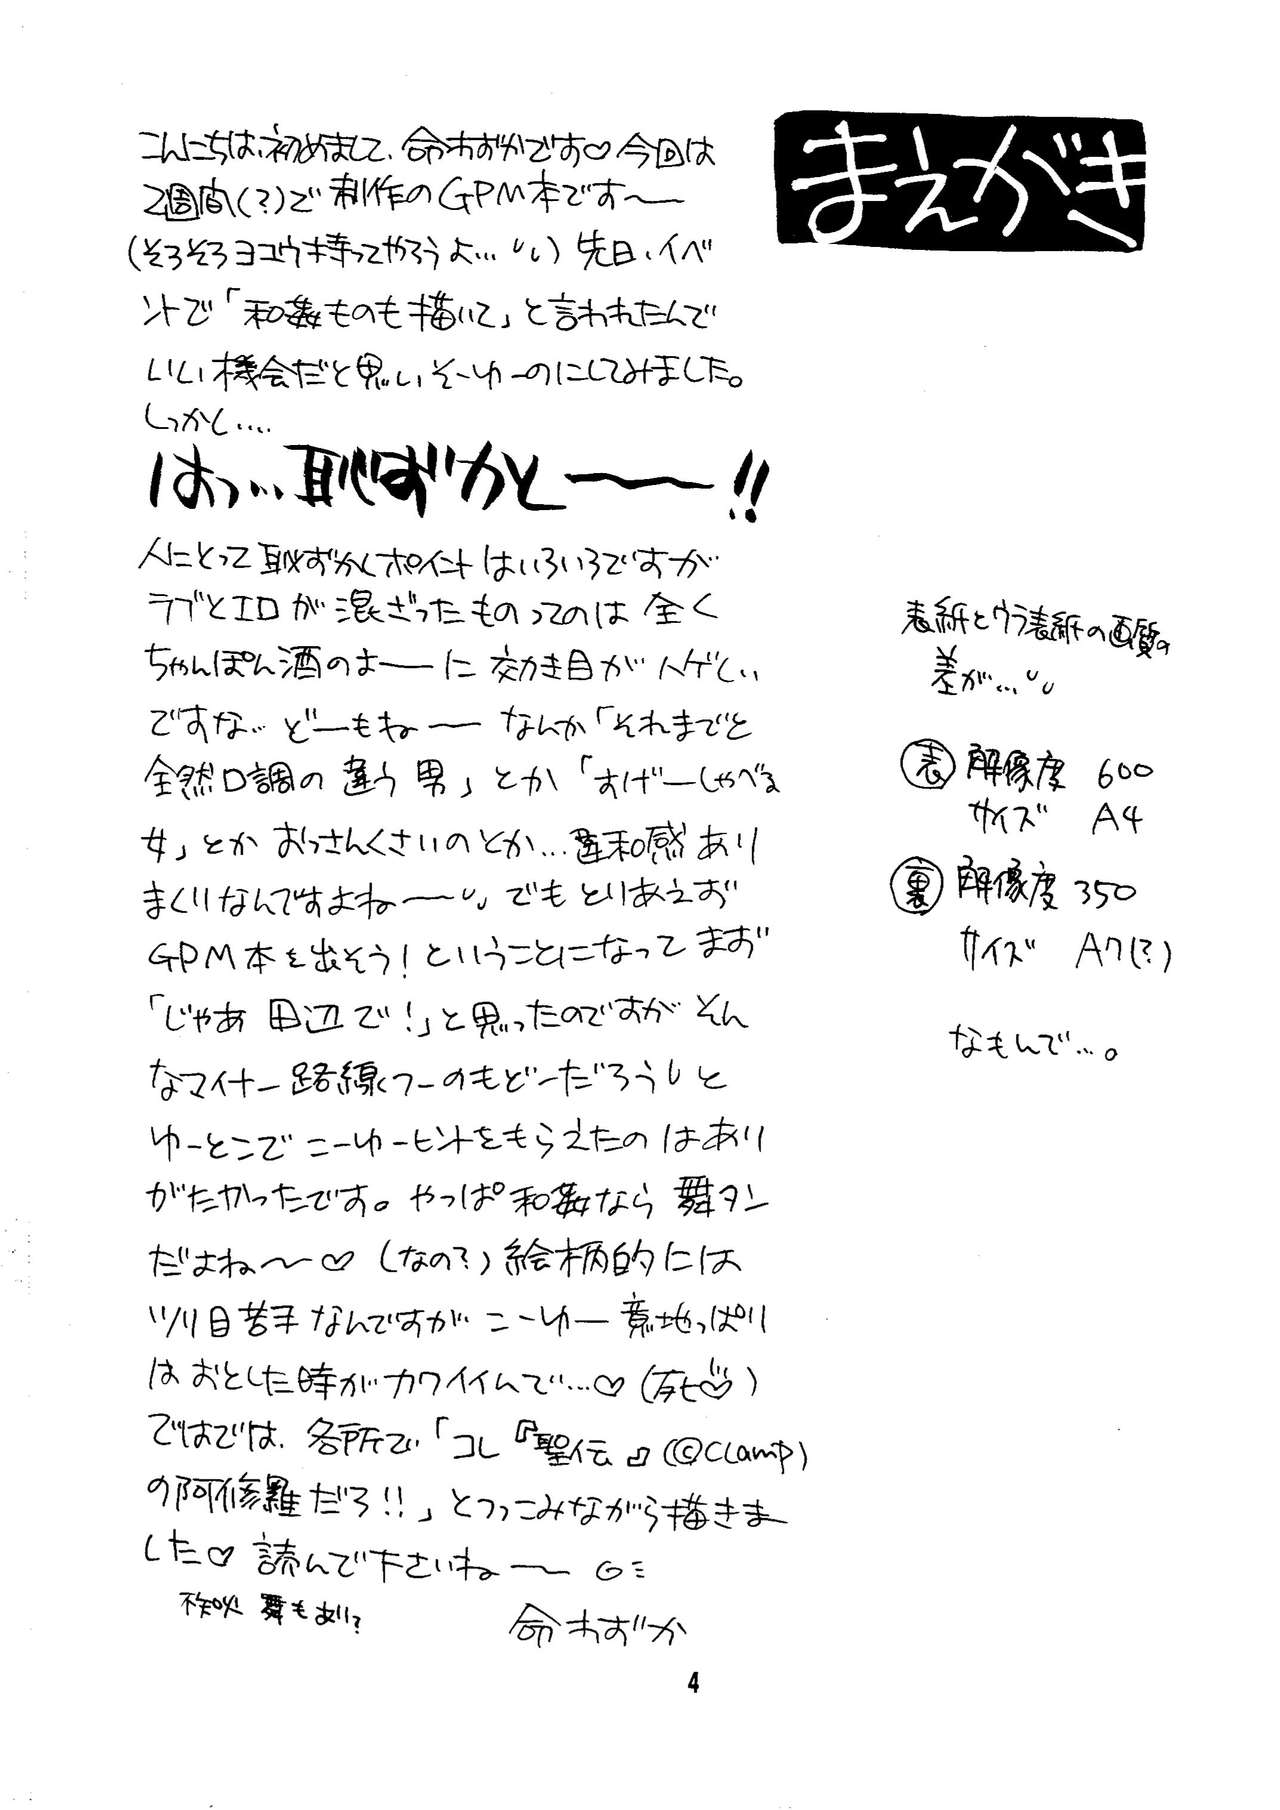 まえがき
こんにちは、初めまして、命わずかです♡今回は
2週間(?)で制作のGPM本です〜
(そろそろヨユウ持ってやろうよ…) 先日、イベ
ントで「和姦ものも描いて」と言われたんで
いい機会だと思いそーゆーのにしてみました。
しっかし‥‥
はっ…恥ずかしー〜!!
人にとって恥ずかしポイントはいろいろですが
ラブとエロが混ざったものってのは全く
ちゃんぽん酒のよーに効き目がハゲしい
ですな… どーもねー なんか「それまでと
全然口調の違う男」とか「すげーしゃべる
女」とかおっさんくさいのとか…違和感あり
まくりなんですよね〜 でもとりあえず
GPM本を出そう!ということになってまず
「じゃあ田辺で!」と思ったのですがそん
なマイナー路線くフーのもどーだろうと
ゆーとこでこーゆーヒントをもらえたのはあり
がたかったです。やっぱ和姦なら舞タン
だよね〜♡(なの?)絵柄的には
ツリ目苦手なんですがこーゆー意地っぱり
はおとした時がカワイイんで…♡(死♡)
ではでは、各所で「コレ『聖伝』(©CLAMP)
の阿修羅だろ!!」とつっこみながら描きま
した♡ 読んで下さいねー〜
舞もあり?
命わずか
表紙とウラ表紙の画質の
差が…
表 解像度 600
サイズ A4
裏 解像度 350
サイズ A7(?)
なもんで…。
4